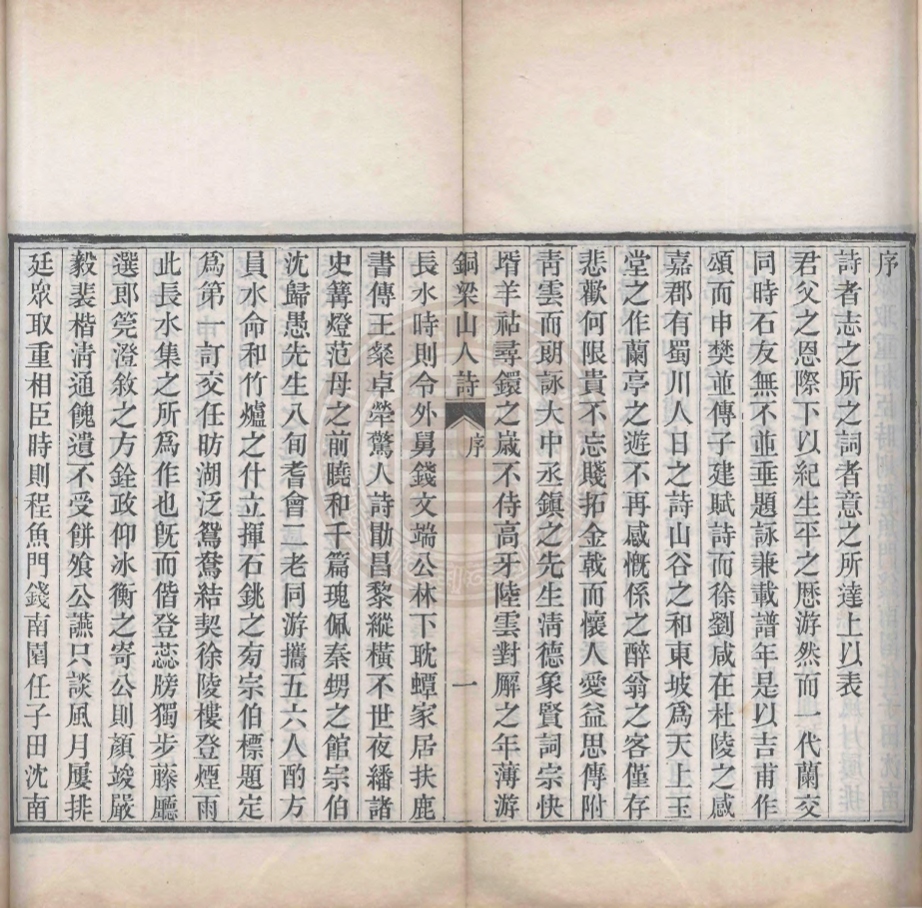 序
詩者志之所之詞者意之所達上以表
君父之恩際下以紀生平之歷游然而一代蘭交
同時石友無不並垂題詠兼載譜年是以吉甫作
頌而申樊並傳子建賦詩而徐劉咸在杜陵之感
嘉郡有蜀川人日之詩山谷之和東坡爲天上玉
堂之作蘭亭之遊不再感慨係之醉翁之客僅存
悲歡何限貴不忘賤拓金戟而懷人愛益思傳附
靑雲而朗詠大中丞鎮之先生淸德象賢詞宗快
壻羊祜尋鐶之嵗不侍高牙陸雲對廨之年薄游
銅梁山人詩 序 一
長水時則令外舅錢文端公林下耽蟫家居扶鹿
書傳王粲卓犖驚人詩勖昌黎縱橫不世夜繙諸
史篝燈范母之前曉和千篇瑰佩秦甥之館宗伯
沈歸愚先生八旬耆會二老同游攜五六人酌方
員水命和竹爐之什立揮石銚之歌宗伯標題定
爲第一訂交任昉湖泛鴛鴦結契徐陵樓登煙雨
此長水集之所爲作也旣而偕登蕊牓獨步藤廳
選郎筦澄敘之方銓政仰冰衡之寄公則顔竣嚴
毅裴楷淸通餽遺不受餅飧公讌只談風月屢排
廷眾取重相臣時則程魚門錢南園任子田沈南